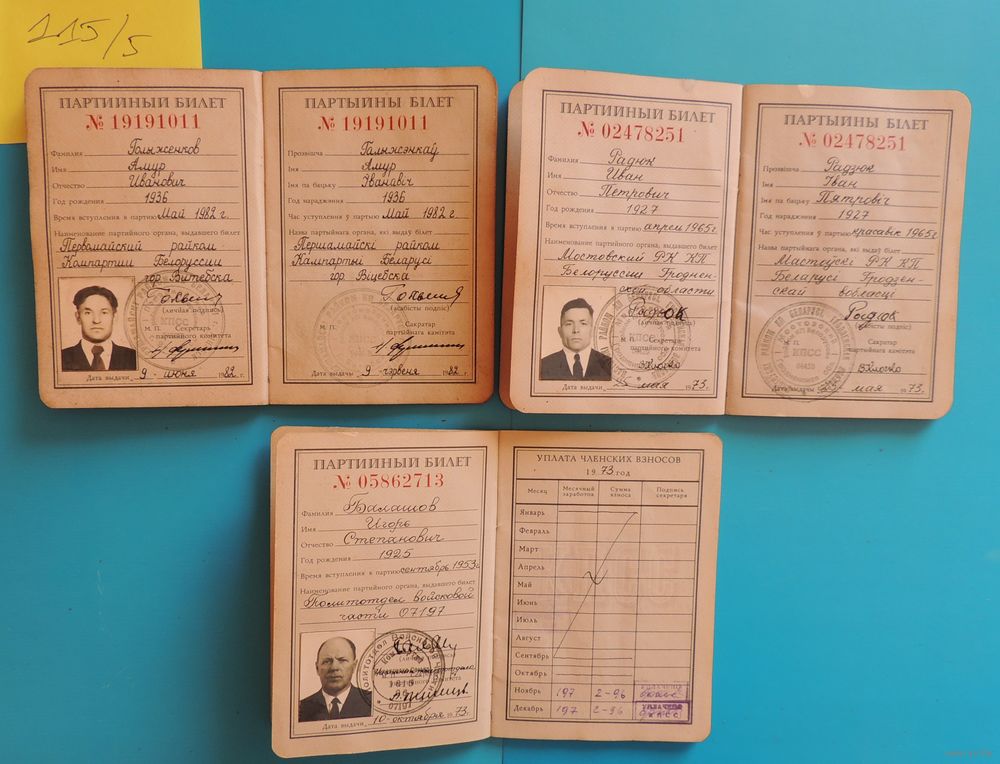 115/5
ПАРТИЙНЫЙ БИЛЕТ
№ 19191011
Фамилия Голыженков
Имя Амур
Отчество Иванович
Год рождения 1936
Время вступления в партию Май 1982 г.
Наименование партийного органа, выдавшего билет
Первомайский райком
Компартии Белоруссии
гор. Витебска
(личная подпись)
М. П. Секретарь
партийного комитета
Дата выдачи 9 июня 1982 г.
ПАРТЫЙНЫ БІЛЕТ
№ 19191011
Прозвішча Галыжэнкаў
Імя Амур
Імя па бацьку Іванавіч
Год нараджэння 1936
Час уступлення ў партыю Май 1982 г.
Назва партыйнага органа, які выдаў білет
Першамайскі райком
Кампартыі Беларусі
гор. Віцебска
(асабісты подпіс)
М. П. Сакратар
партыйнага камітэта
Дата выдачы 9 чэрвеня 1982 г.
ПАРТИЙНЫЙ БИЛЕТ
№ 02478251
Фамилия Радюк
Имя Иван
Отчество Петрович
Год рождения 1927
Время вступления в партию апрель 1965 г.
Наименование партийного органа, выдавшего билет
Мостовский РК КП
Белоруссии Гроднен-
ской области
Радюк
(личная подпись)
Секретарь
партийного комитета
КПСС
мая 1973 г.
ПАРТЫЙНЫ БІЛЕТ
№ 02478251
Прозвішча Радзюк
Імя Іван
Імя па бацьку Пятровіч
Год нараджэння 1927
Час уступлення ў партыю красавік 1965 г.
Назва партыйнага органа, які выдаў білет
Мастоўскі РК КП
Беларусі Гродзен-
скай вобласці
Радюк
(асабісты подпіс)
М. П. Сакратар
партыйнага камітэта
КПСС
Дата выдачы мая 1973 г.
ПАРТИЙНЫЙ БИЛЕТ
№ 05862713
Фамилия Балашов
Имя Игорь
Отчество Степанович
Год рождения 1925
Время вступления в партию сентябрь 1953 г.
Наименование партийного органа, выдавшего билет
Политотдел войсковой
части 07197
Дата выдачи 10 октября 1973 г.
УПЛАТА ЧЛЕНСКИХ ВЗНОСОВ
1973 год
Месяц Месячный заработок Сумма взноса Подпись секретаря
Январь
Февраль
Март
Апрель
Май
Июнь
Июль
Август
Сентябрь
Октябрь
Ноябрь 197 2-96
Декабрь 197 2-96